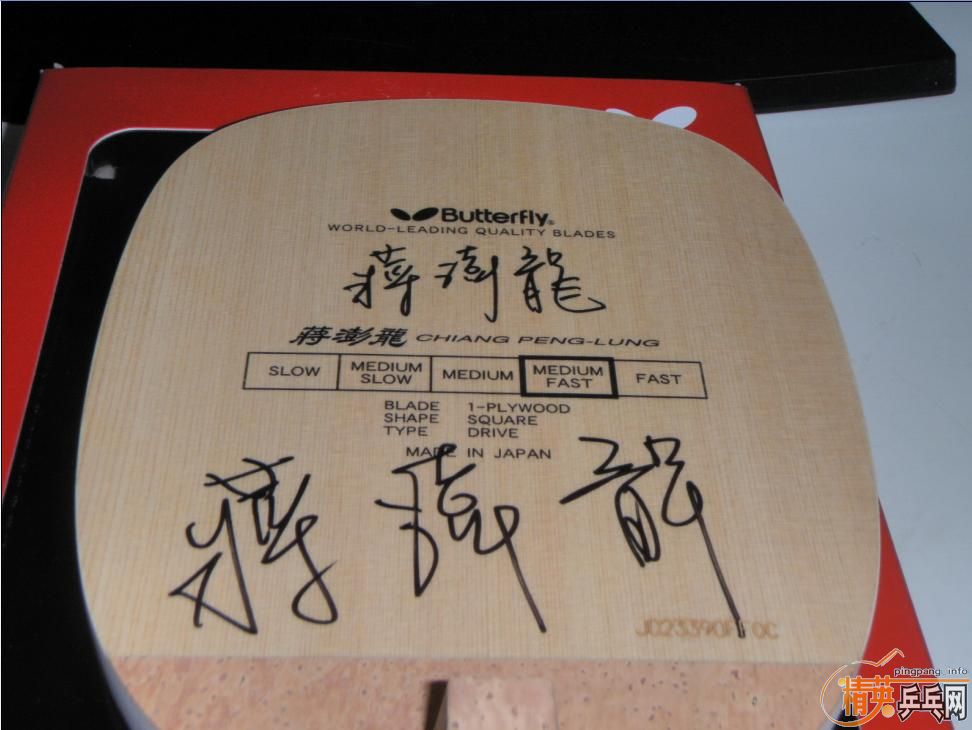 Butterfly®
WORLD-LEADING QUALITY BLADES
蒋澎龍
蒋澎龍 CHIANG PENG-LUNG
SLOW MEDIUM SLOW MEDIUM MEDIUM FAST FAST
BLADE 1-PLYWOOD
SHAPE SQUARE
TYPE DRIVE
MADE IN JAPAN
蒋澎龍
pingpang.info
精英乒乓网